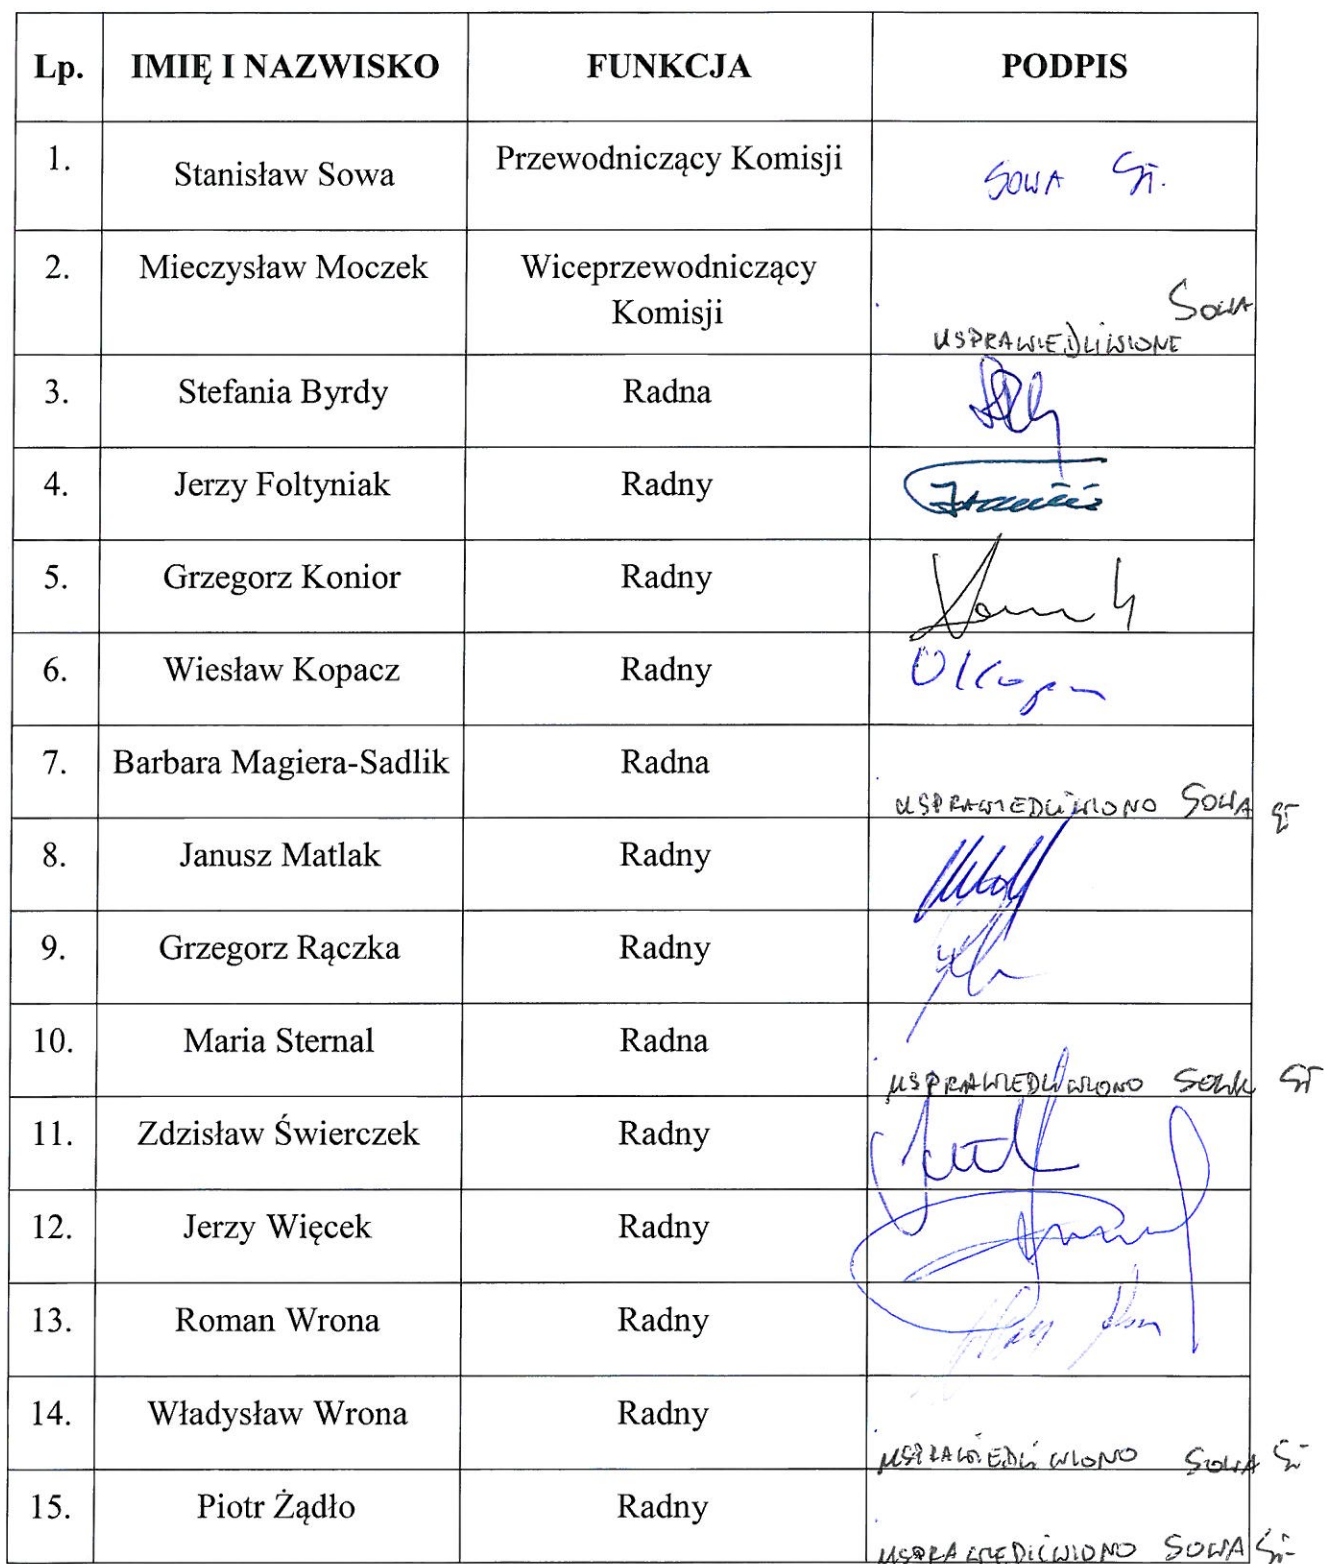 Lp. IMIĘ I NAZWISKO FUNKCJA PODPIS
1. Stanisław Sowa Przewodniczący Komisji SOWA ST.
2. Mieczysław Moczek Wiceprzewodniczący
Komisji SOWA
USPRAWIEDLIWIONE
3. Stefania Byrdy Radna
4. Jerzy Foltyniak Radny
5. Grzegorz Konior Radny
6. Wiesław Kopacz Radny
7. Barbara Magiera-Sadlik Radna
USPRAWIEDLIWIONO SOWA ST
8. Janusz Matlak Radny
9. Grzegorz Rączka Radny
10. Maria Sternal Radna
USPRAWIEDLIWIONO SOWA ST
11. Zdzisław Świerczek Radny
12. Jerzy Więcek Radny
13. Roman Wrona Radny
14. Władysław Wrona Radny
USPRAWIEDLIWIONO SOWA ST
15. Piotr Żądło Radny
USPRAWIEDLIWIONO SOWA ST